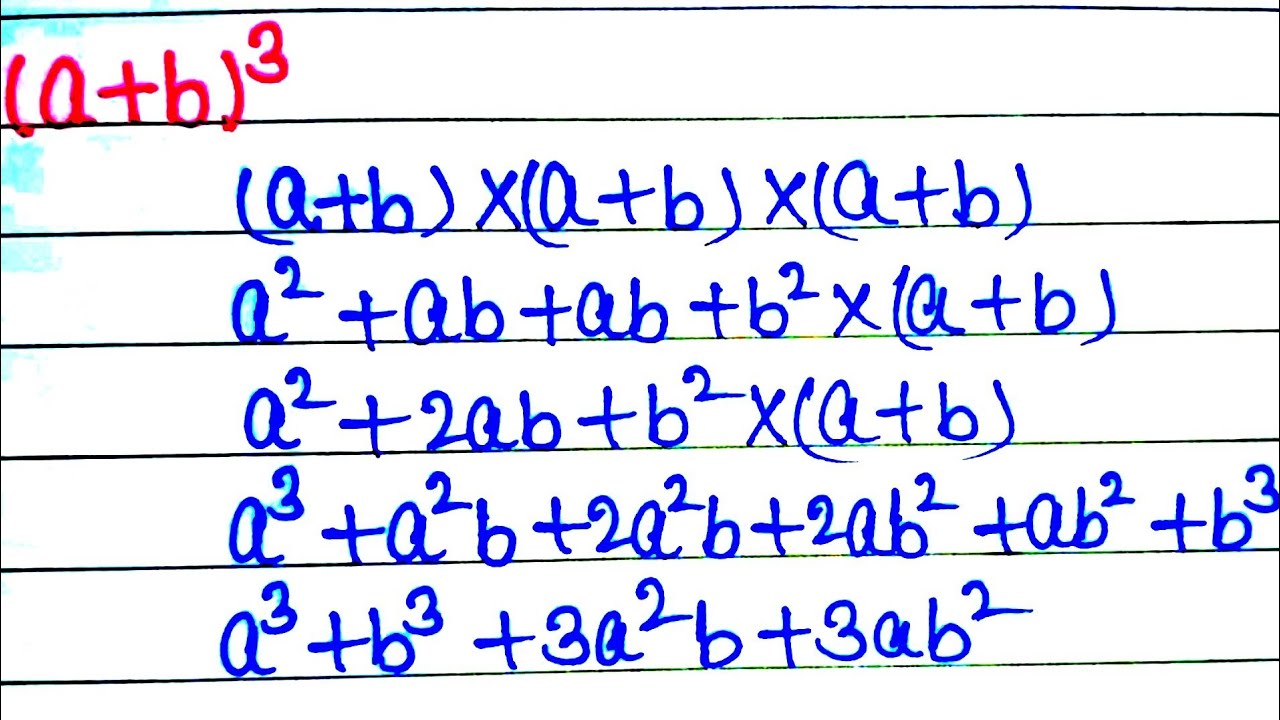 (a+b)³
(a+b)×(a+b)×(a+b)
a²+ab+ab+b²×(a+b)
a²+2ab+b²×(a+b)
a³+a²b+2a²b+2ab²+ab²+b³
a³+b³+3a²b+3ab²